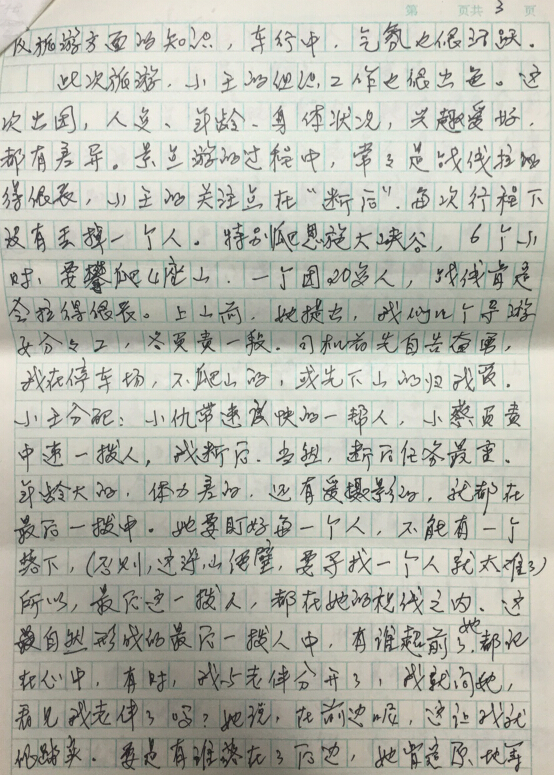 第 页共 3 页
及旅游方面的知识，车行中，气氛也很活跃。
此次旅游，小王的组织工作也很出色。这
次出团，人多、年龄、身体状况，兴趣爱好，
都有差异。景点游的过程中，常常是战线拉的
得很长，小王的关注点在“断后”。每次行程下
没有丢掉一个人。特别爬恩施大峡谷，6个小
时，要攀爬4座山，一个团20多人，战线肯定
会拉得很长。上山前，她提出，我们几个导游
要分分工，各负责一段。司机首先自告奋勇，
我在停车场，不爬山的，或先下山的归我负。
小王分配：小仇带速度快的一帮人，小蔡负责
中速一拨人，我断后。当然，断后任务最重。
年龄大的，体力差的，还有爱摄影的，就都在
最后一拨中。她要盯好每一个人，不能有一个
落下，（否则，这深山僻壁，要寻找一个人就太难了）
所以，最后这一拨人，都在她的视线之内。这
最自然形成的最后一拨人中，有谁超前了，她都记
在心中，有时，我与老伴分开了，我就问她，
看见我老伴了吗？她说，在前边呢，这让我就
很踏实。要是有谁落在了后边，她肯定原地等